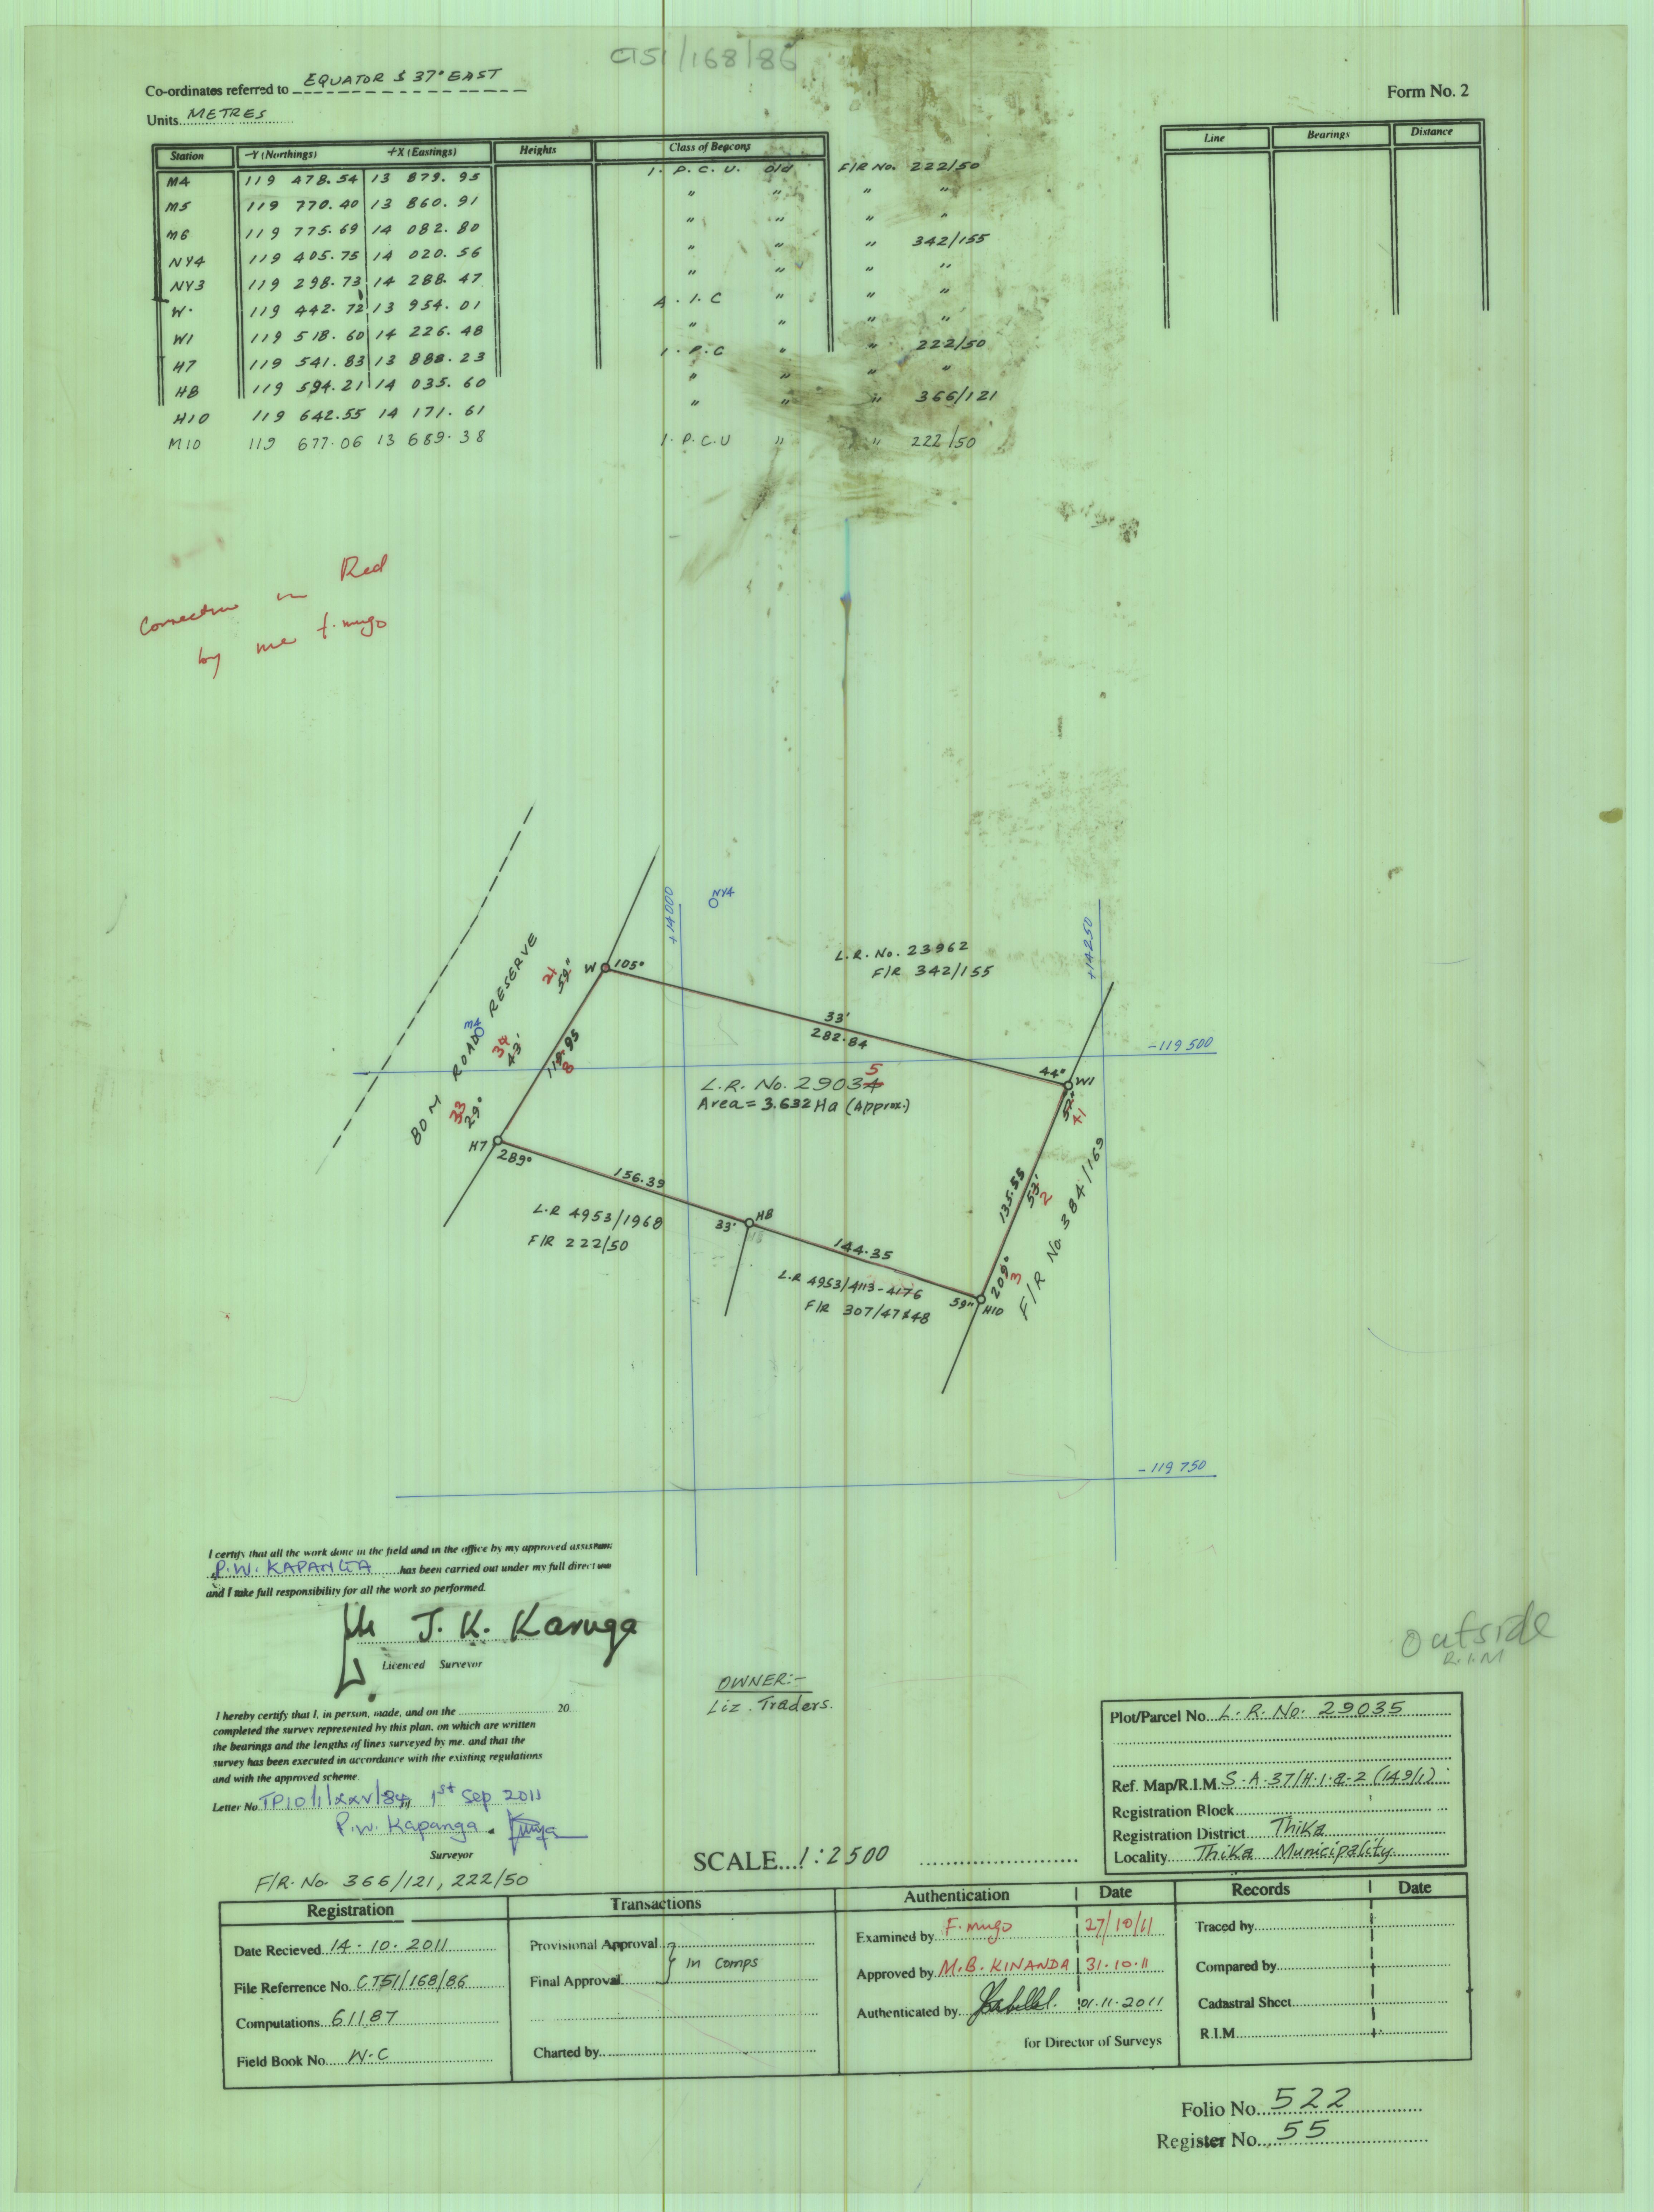 CT51/168/86
Co-ordinates referred to EQUATOR & 37° EAST
Form No. 2
Units METRES
Station -Y (Northings) +X (Eastings) Heights Class of Beacons
Line Bearings Distance
M4 119 478.54 13 879.95 I.P.C.U. Old F/R No. 222/50
M5 119 770.40 13 860.91 " " " "
M6 119 775.69 14 082.80 " " " "
NY4 119 405.75 14 020.56 " " " 342/155
NY3 119 298.73 14 288.47 " " " "
W. 119 442.72 13 954.01 A.I.C " " "
W1 119 518.60 14 226.48 " " " "
H7 119 541.83 13 888.23 I.P.C " " 222/50
H8 119 594.21 14 035.60 " " " "
H10 119 642.55 14 171.61 " " " 366/121
M10 119 677.06 13 689.38 I.P.C.U " " 222/50
Correction in Red
by me f. mugo
+14000
NY4
+14250
L.R. No. 23962
F/R 342/155
W 105°
21
52"
80 M ROAD RESERVE
M4
34
43'
33
29°
33'
282.84
-119 500
8
44°
W1
L.R. No. 29034
5
Area = 3.632 Ha (Approx.)
52"
41
H7
289°
156.39
135.55
53'
2
F/R No. 384/169
L.R 4953/1968
F/R 222/50
33'
H8
144.35
209°
3
L.R 4953/4113-4176
F/R 307/47&48
59"
H10
-119 750
I certify that all the work done in the field and in the office by my approved assistant
P.W. KAPANGA has been carried out under my full direction
and I take full responsibility for all the work so performed.
J. K. Karuga
Licenced Surveyor
Outside
R.I.M
OWNER:-
Liz. Traders.
I hereby certify that I, in person, made, and on the 20
completed the survey represented by this plan, on which are written
the bearings and the lengths of lines surveyed by me, and that the
survey has been executed in accordance with the existing regulations
and with the approved scheme.
Letter No 1st Sep 2011
P.W. Kapanga.
Surveyor
F/R. No. 366/121, 222/50
SCALE 1:2500
Plot/Parcel No. L.R. No. 29035
Ref. Map/R.I.M S.A.37/H.1.8-2 (149/1)
Registration Block
Registration District Thika
Locality Thika Municipality
Registration
Date Recieved 14-10-2011
File Referrence No. CT51/168/86
Computations 61187
Field Book No. W.C
Transactions
Provisional Approval
In Comps
Final Approval
Charted by
Authentication Date
Examined by F. mugo 27/10/11
Approved by M.B. KINANDA 31.10.11
Authenticated by 01.11.2011
for Director of Surveys
Records Date
Traced by
Compared by
Cadastral Sheet
R.I.M
Folio No. 522
Register No. 55